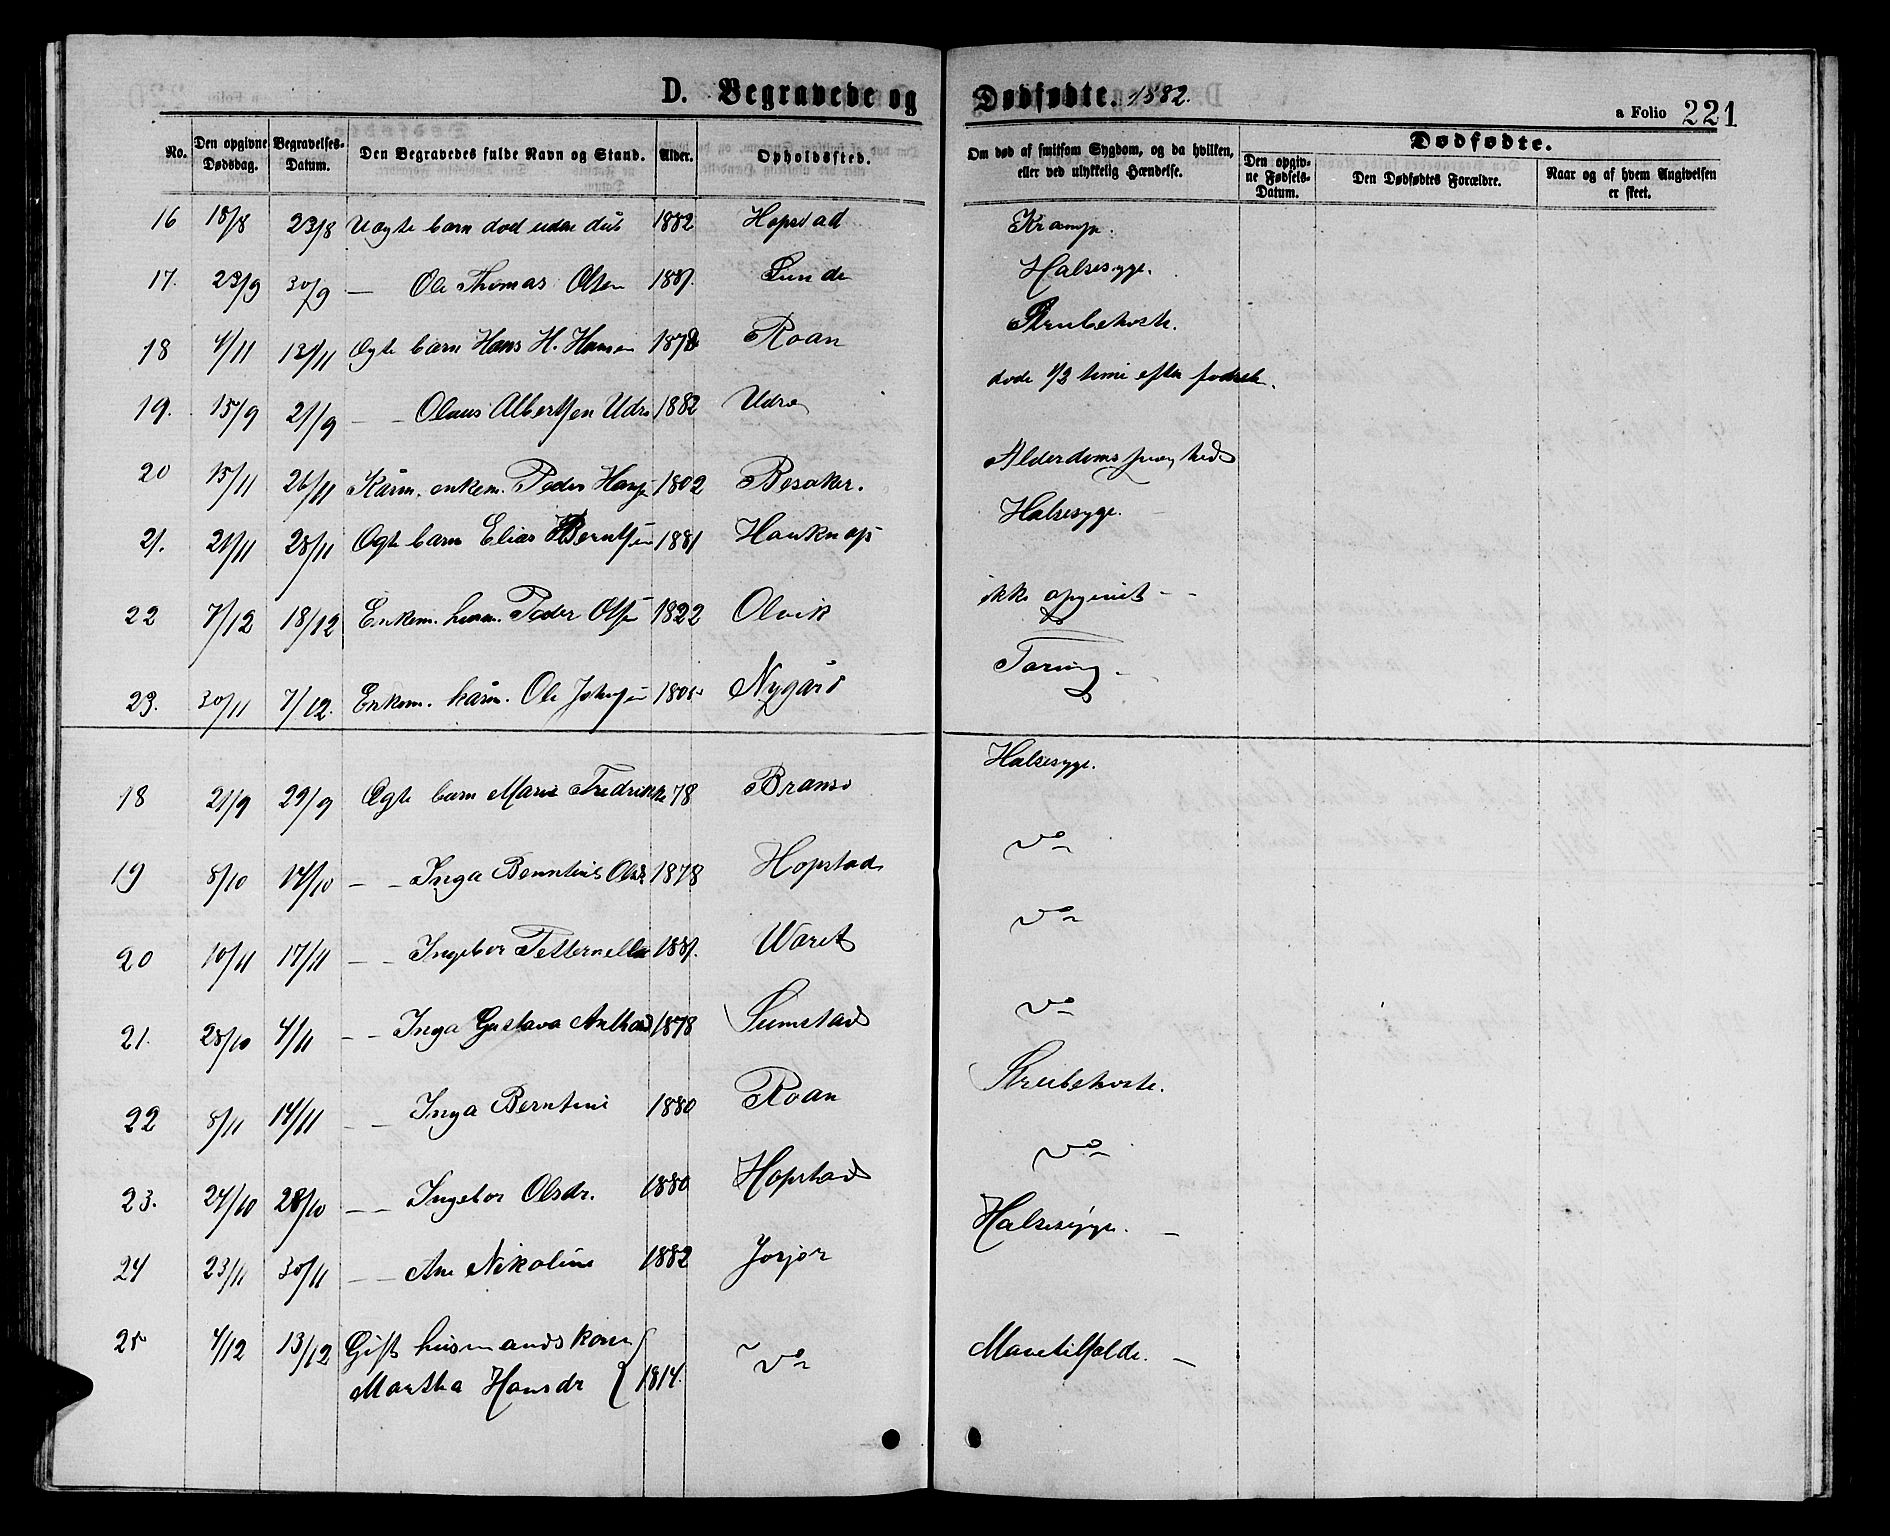 D. Begravede og Dødfødte. 1882.
a Folio 221
No. Den opgivne Dødsdag. Begravelses-Datum. Den Begravedes fulde Navn og Stand. Alder. Opholdssted. Om død af smitsom Sygdom, og da hvilken, eller ved ulykkelig Hændelse. Dødfødte. Den opgivne Fødsels-Datum. Den Dødfødtes Forældre. Naar og af hvem Angivelsen er skeet.
16 18/8 23/8 Uægte barn død uden 1882 Hopstad Krampe.
17. 23/9 30/9 — Ole Thomas Olsen 1881. Sunde Halsesyge.
18 4/11 13/11 Ægte barn Hans H. Hansen Roan Strubehoste.
19. 15/9 21/9 — — Olaus Albertsen Udrø 1882 Udrø døde 1/2 time efter fødsel.
20 15/11 26/11 Kårm. enkem. Peder 1802 Besaker. Alderdomssvaghed
21. 21/11 28/11 Ægte barn Elias Berntsen 1881 Halsesyge.
22 7/12 18/12 Enkem. husm. Peder Olsen 1822 Olvik ikke opgivet - -
23. 30/11 7/12. Enkem. kårm. Ole Johnsen Nygård Tæring -
18 21/9 29/9 Ægte barn Marie Fredrikke 78 Bransø Halsesyge.
19 8/10 14/10 — — Inga Berntine Olsd. 1878 Hopstad do
20 10/11 17/11 — — Ingebor Petternella 1881. Waret do
21. 28/10 4/11 — — Inga Gustava 1878 Sumstad do
22 8/11 14/11 — — Inga Berntine 1880 Roan Strubehoste.
23. 24/10 28/10 — — Ingebor Olsdr. 1880 Hopstad do
24 23/11 30/11 — — Ane Nikoline 1882 Jøsjør Halsesyge. —
25 4/12 13/12 Gift husmandskone
Martha Hansdr 1814. do Mavetilfælde. —